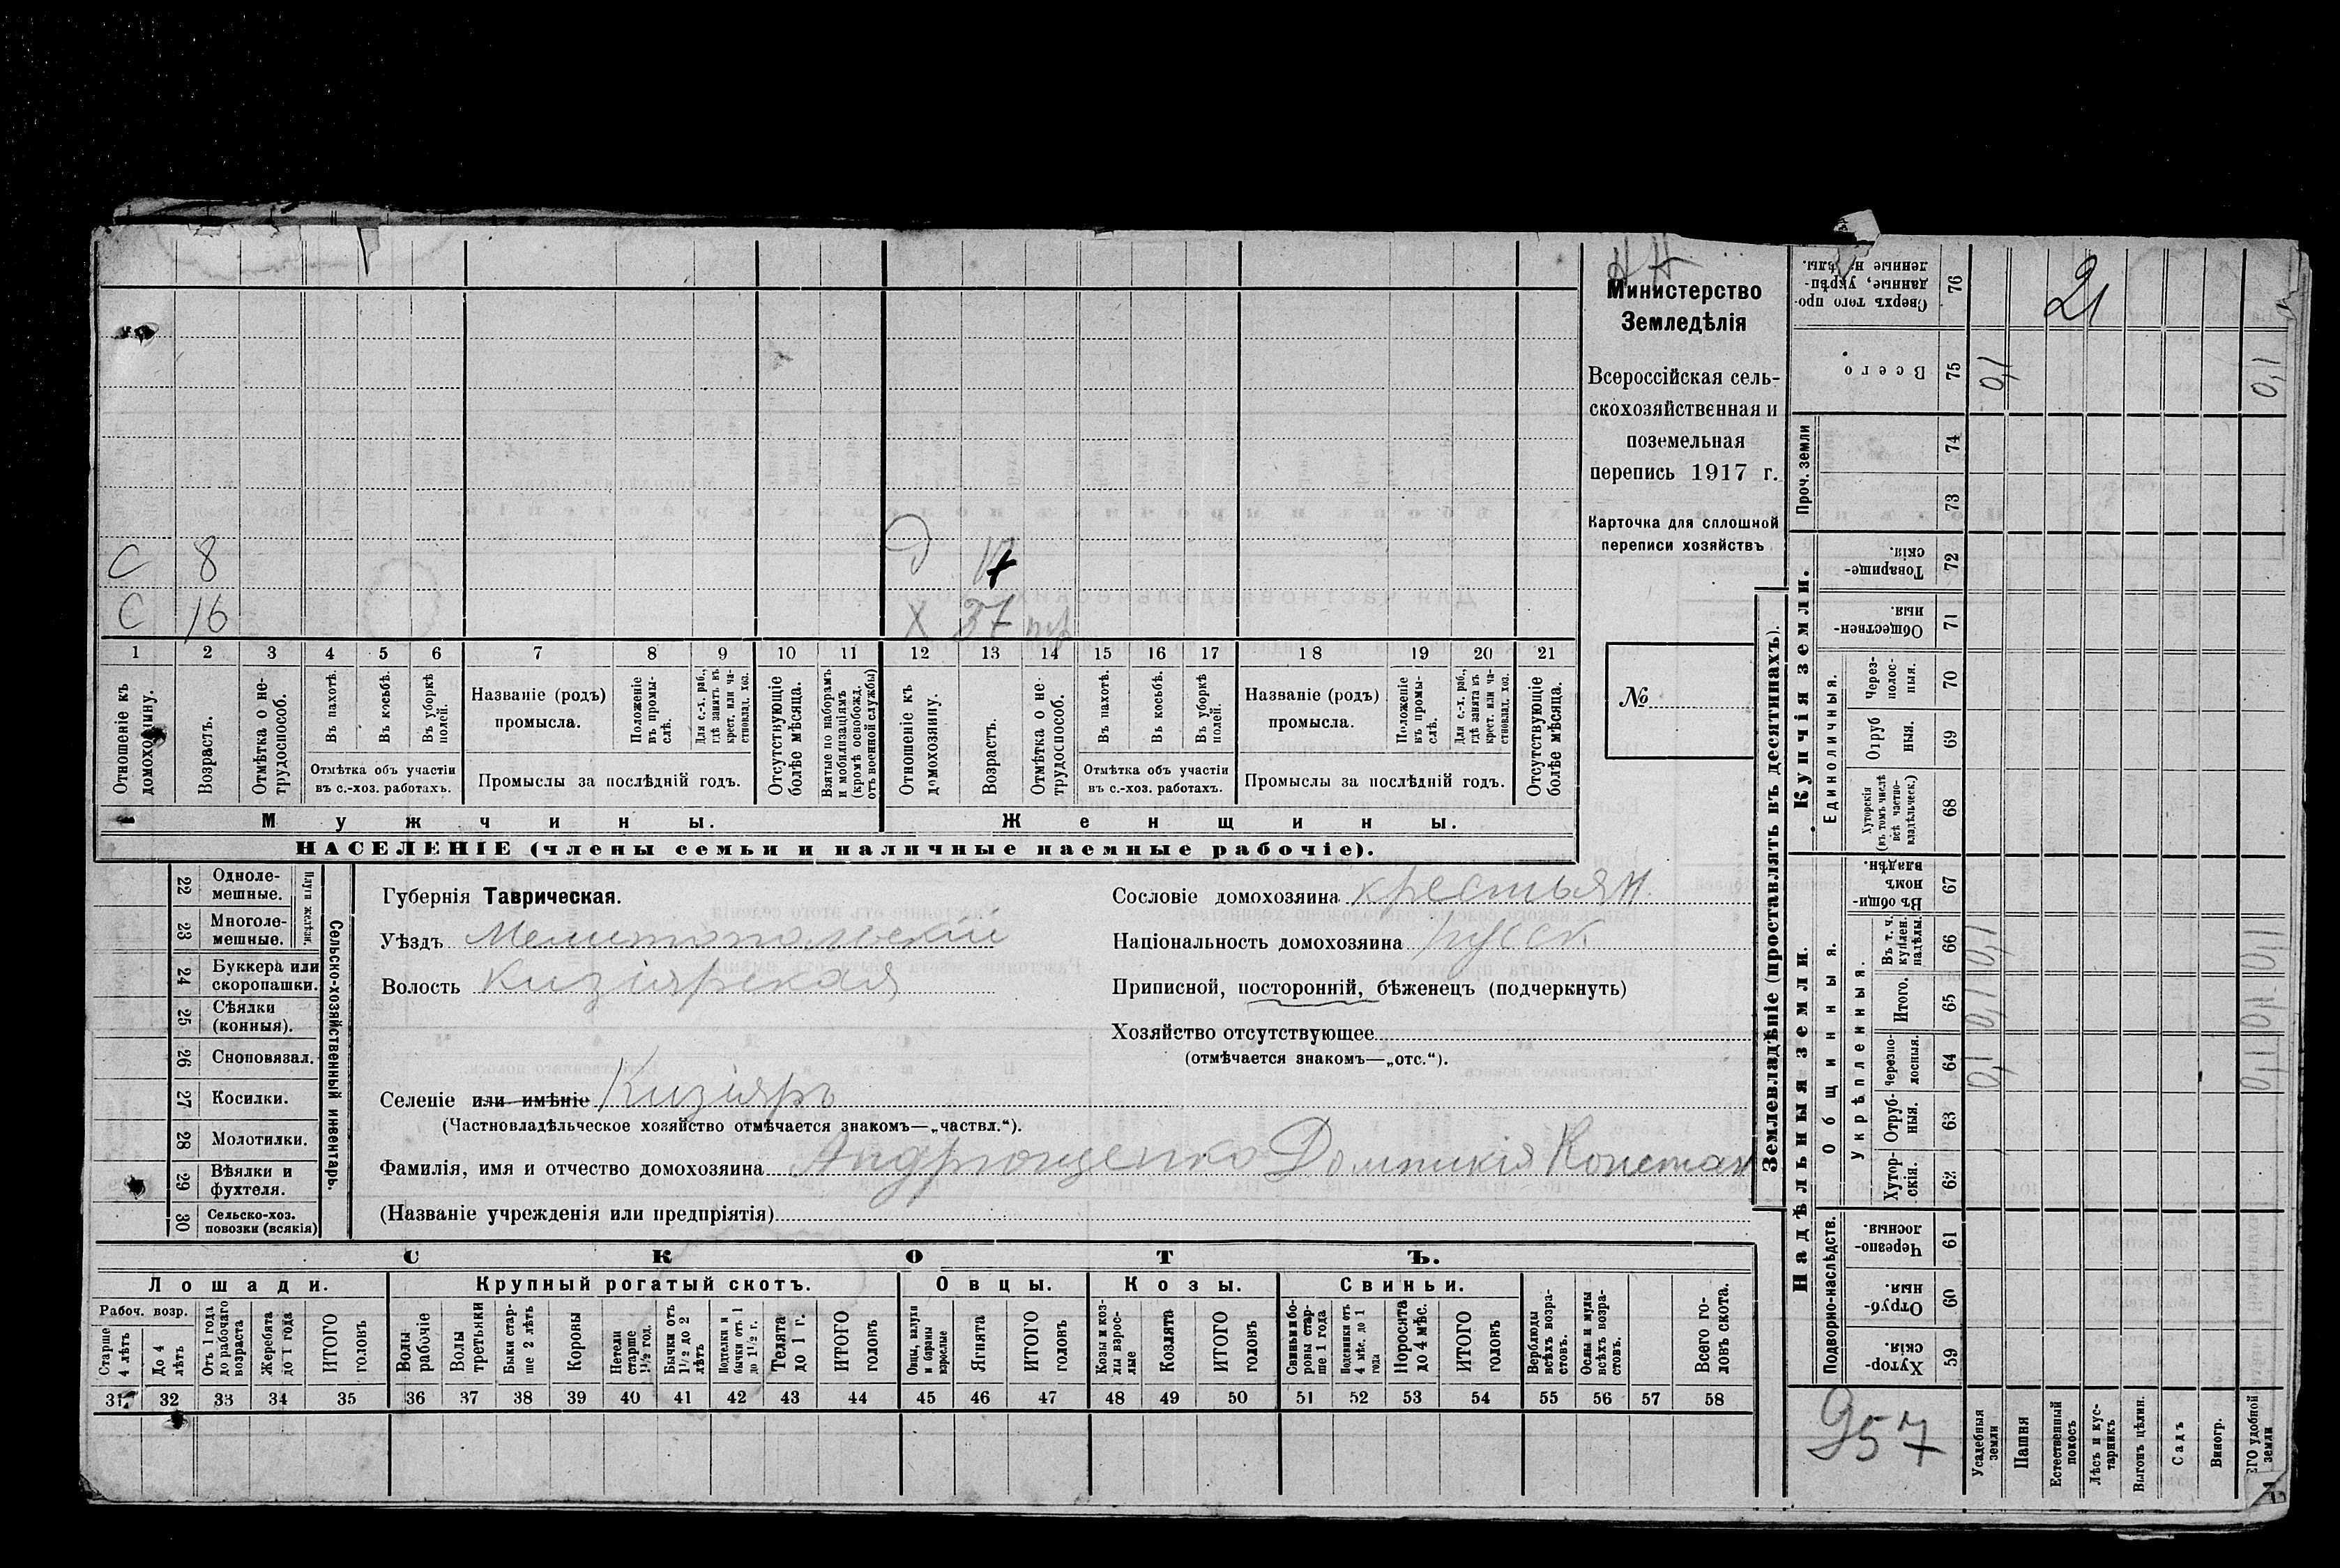 НН
Министерство
Земледѣлія
Всероссійская сель-
скохозяйственная и
поземельная
перепись 1917 г.
Карточка для сплошной
переписи хозяйствъ
№
С 8
С 16
Х 37
1 2 3 4 5 6 7 8 9 10 11 12 13 14 15 16 17 18 19 20 21
Отношеніе къ домохозяину.
Возрастъ.
Отмѣтка о не-трудоспособ.
Въ пахотѣ.
Въ косьбѣ.
Въ уборкѣ полей.
Отмѣтка объ участіи
въ с.-хоз. работахъ.
Названіе (родъ)
промысла.
Положеніе въ промы-слѣ.
Для с.-х. раб., гдѣ занятъ въ крест. или ча-стновлад. хоз.
Промыслы за послѣдній годъ.
Отсутствующіе болѣе мѣсяца.
Взятые по наборамъ и мобилизаціямъ (кромѣ освобожд. отъ военной службы)
Отношеніе къ домохозяину.
Возрастъ.
Отмѣтка о не-трудоспособ.
Въ пахотѣ.
Въ косьбѣ.
Въ уборкѣ полей.
Отмѣтка объ участіи
въ с.-хоз. работахъ.
Названіе (родъ)
промысла.
Положеніе въ промы-слѣ.
Для с.-х. раб., гдѣ занята въ крест. или ча-стновлад. хоз.
Промыслы за послѣдній годъ.
Отсутствующіе болѣе мѣсяца.
Мужчины.
Женщины.
НАСЕЛЕНІЕ (члены семьи и наличные наемные рабочіе).
Сельско-хозяйственный инвентарь.
Плуги желѣзн.
22 Одноле-мешные.
23 Многоле-мешные.
24 Буккера или скоропашки.
25 Сѣялки (конныя).
26 Сноповязал.
27 Косилки.
28 Молотилки.
29 Вѣялки и фухтеля.
30 Сельско-хоз. повозки (всякія)
Губернія Таврическая.
Уѣздъ Мелитопольскій
Волость Кизіярская
Сословіе домохозяина крестьян.
Національность домохозяина русск.
Приписной, посторонній, бѣженецъ (подчеркнуть)
Хозяйство отсутствующее
(отмѣчается знакомъ—„отс.“).
Селеніе или имѣніе Кизіяръ
(Частновладѣльческое хозяйство отмѣчается знакомъ—„частвл.“).
Фамилія, имя и отчество домохозяина Андрющенко Домникія Констан
(Названіе учрежденія или предпріятія)
СКОТЪ.
Лошади.
Крупный рогатый скотъ.
Овцы.
Козы.
Свиньи.
Рабоч. возр.
Старше 4 лѣтъ
До 4 лѣтъ
Отъ 1 года до рабочаго возраста
Жеребята до 1 года
ИТОГО головъ
Волы рабочіе
Волы третьяки
Быки стар-ше 2 лѣтъ
Коровы
Нетели старше 1½ год.
Бычки отъ 1½ до 2 лѣтъ
Подтелки и бычки отъ 1 до 1½ г.
Телята до 1 г.
ИТОГО головъ
Овцы, валухи и бараны взрослые
Ягнята
ИТОГО головъ
Козы и коз-лы взрос-лые
Козлята
ИТОГО головъ
Свиньи и бо-ровы стар-ше 1 года
Подсвинки отъ 4 мѣс. до 1 года
Поросята до 4 мѣс.
ИТОГО головъ
Верблюды всѣхъ возра-стовъ.
Ослы и мулы всѣхъ возра-стовъ.
Всего го-ловъ скота.
31 32 33 34 35 36 37 38 39 40 41 42 43 44 45 46 47 48 49 50 51 52 53 54 55 56 57 58
Землевладѣніе (проставлять въ десятинахъ).
Купчія земли.
Надѣльныя земли.
Сверхъ того про-данные, укрѣп-ленные надѣлы. 76
21
Всего 75
0,1
0,1
Проч. земли
74
73
Товарище-скія. 72
Обществен-ныя. 71
Единоличныя.
Через-полос-ныя. 70
Отруб ныя. 69
Хуторскія (въ томъ числѣ всѣ частно-владѣльческ.) 68
Общинныя.
Въ общи-номъ владѣн. 67
Укрѣпленныя.
Въ т. ч. куплен. надѣлы. 66
0,1
0,1
Итого. 65
0,1
0,1
Черезпо-лосныя. 64
0,1
0,1
Отруб-ныя. 63
Хутор-скія. 62
Подворно-наслѣдств.
Черезпо-лосныя. 61
Отруб-ныя. 60
Хутор-скія. 59
957
Усадебныя земли
Пашня
Естественный покосъ
Лѣсъ и кус-тарникъ
Выгонъ цѣлин.
Садъ
Виногр.
ЕГО удобной земли